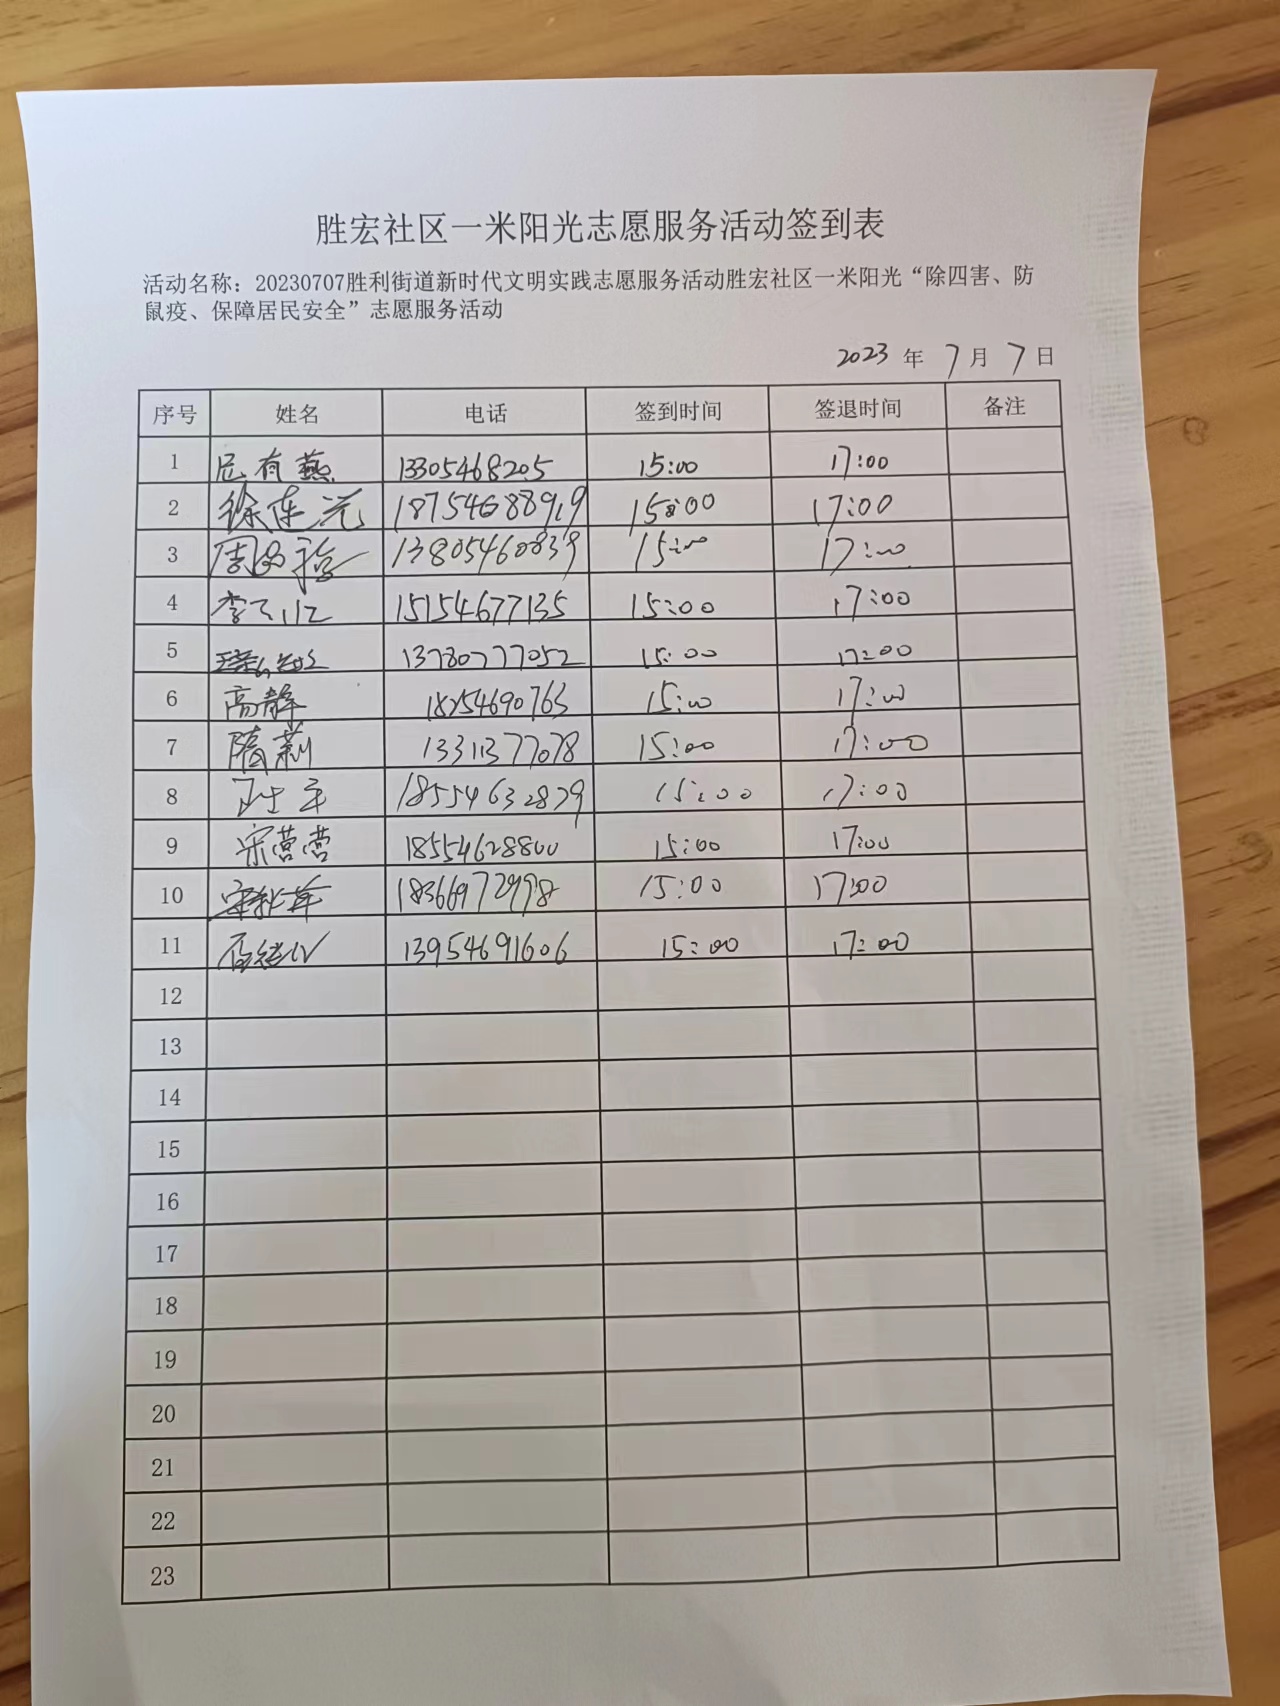 胜宏社区一米阳光志愿服务活动签到表
活动名称：20230707胜利街道新时代文明实践志愿服务活动胜宏社区一米阳光“除四害、防
鼠疫、保障居民安全”志愿服务活动
2023 年 7 月 7 日
序号 姓名 电话 签到时间 签退时间 备注
1 尼有燕 13305468205 15:00 17:00
2 徐连 18754688919 15:00 17:00
3 周 13805460839 15:00 17:00
4 李 15154677135 15:00 17:00
5 13780777052 15:00 17:00
6 高静 18254690763 15:00 17:00
7 隋莉 13311377078 15:00 17:00
8 18554632879 15:00 17:00
9 宋营营 18554628800 15:00 17:00
10 18366972998 15:00 17:00
11 13954691606 15:00 17:00
12
13
14
15
16
17
18
19
20
21
22
23